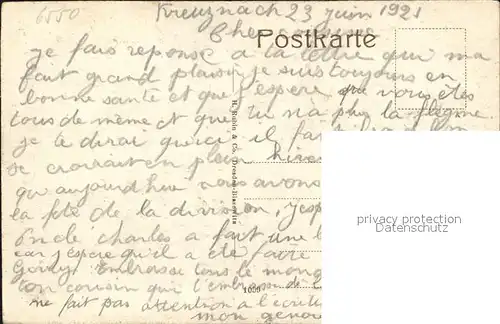 6550
Kreuznach 23 juin 1921
Cher cousin
Postkarte
je fais reponse a ta lettre qui ma
fait grand plaisir je suis toujours en
bonne santé et que j'espere que vous etes
tous de même et que tu n'a plus la flegme.
je te dirai qu'ici il fait
se croirait en plein hiver
qu'aujourdhui nous avons
la fête de la division, j'esp
Oncle charles a fait une
car j'espère qu'il a été faire
Embrasse tous le mon
ton cousin qui t'embrasse de
ne fait pas attention a l'ecrit
mon genou
1660
privacy protection
Datenschutz